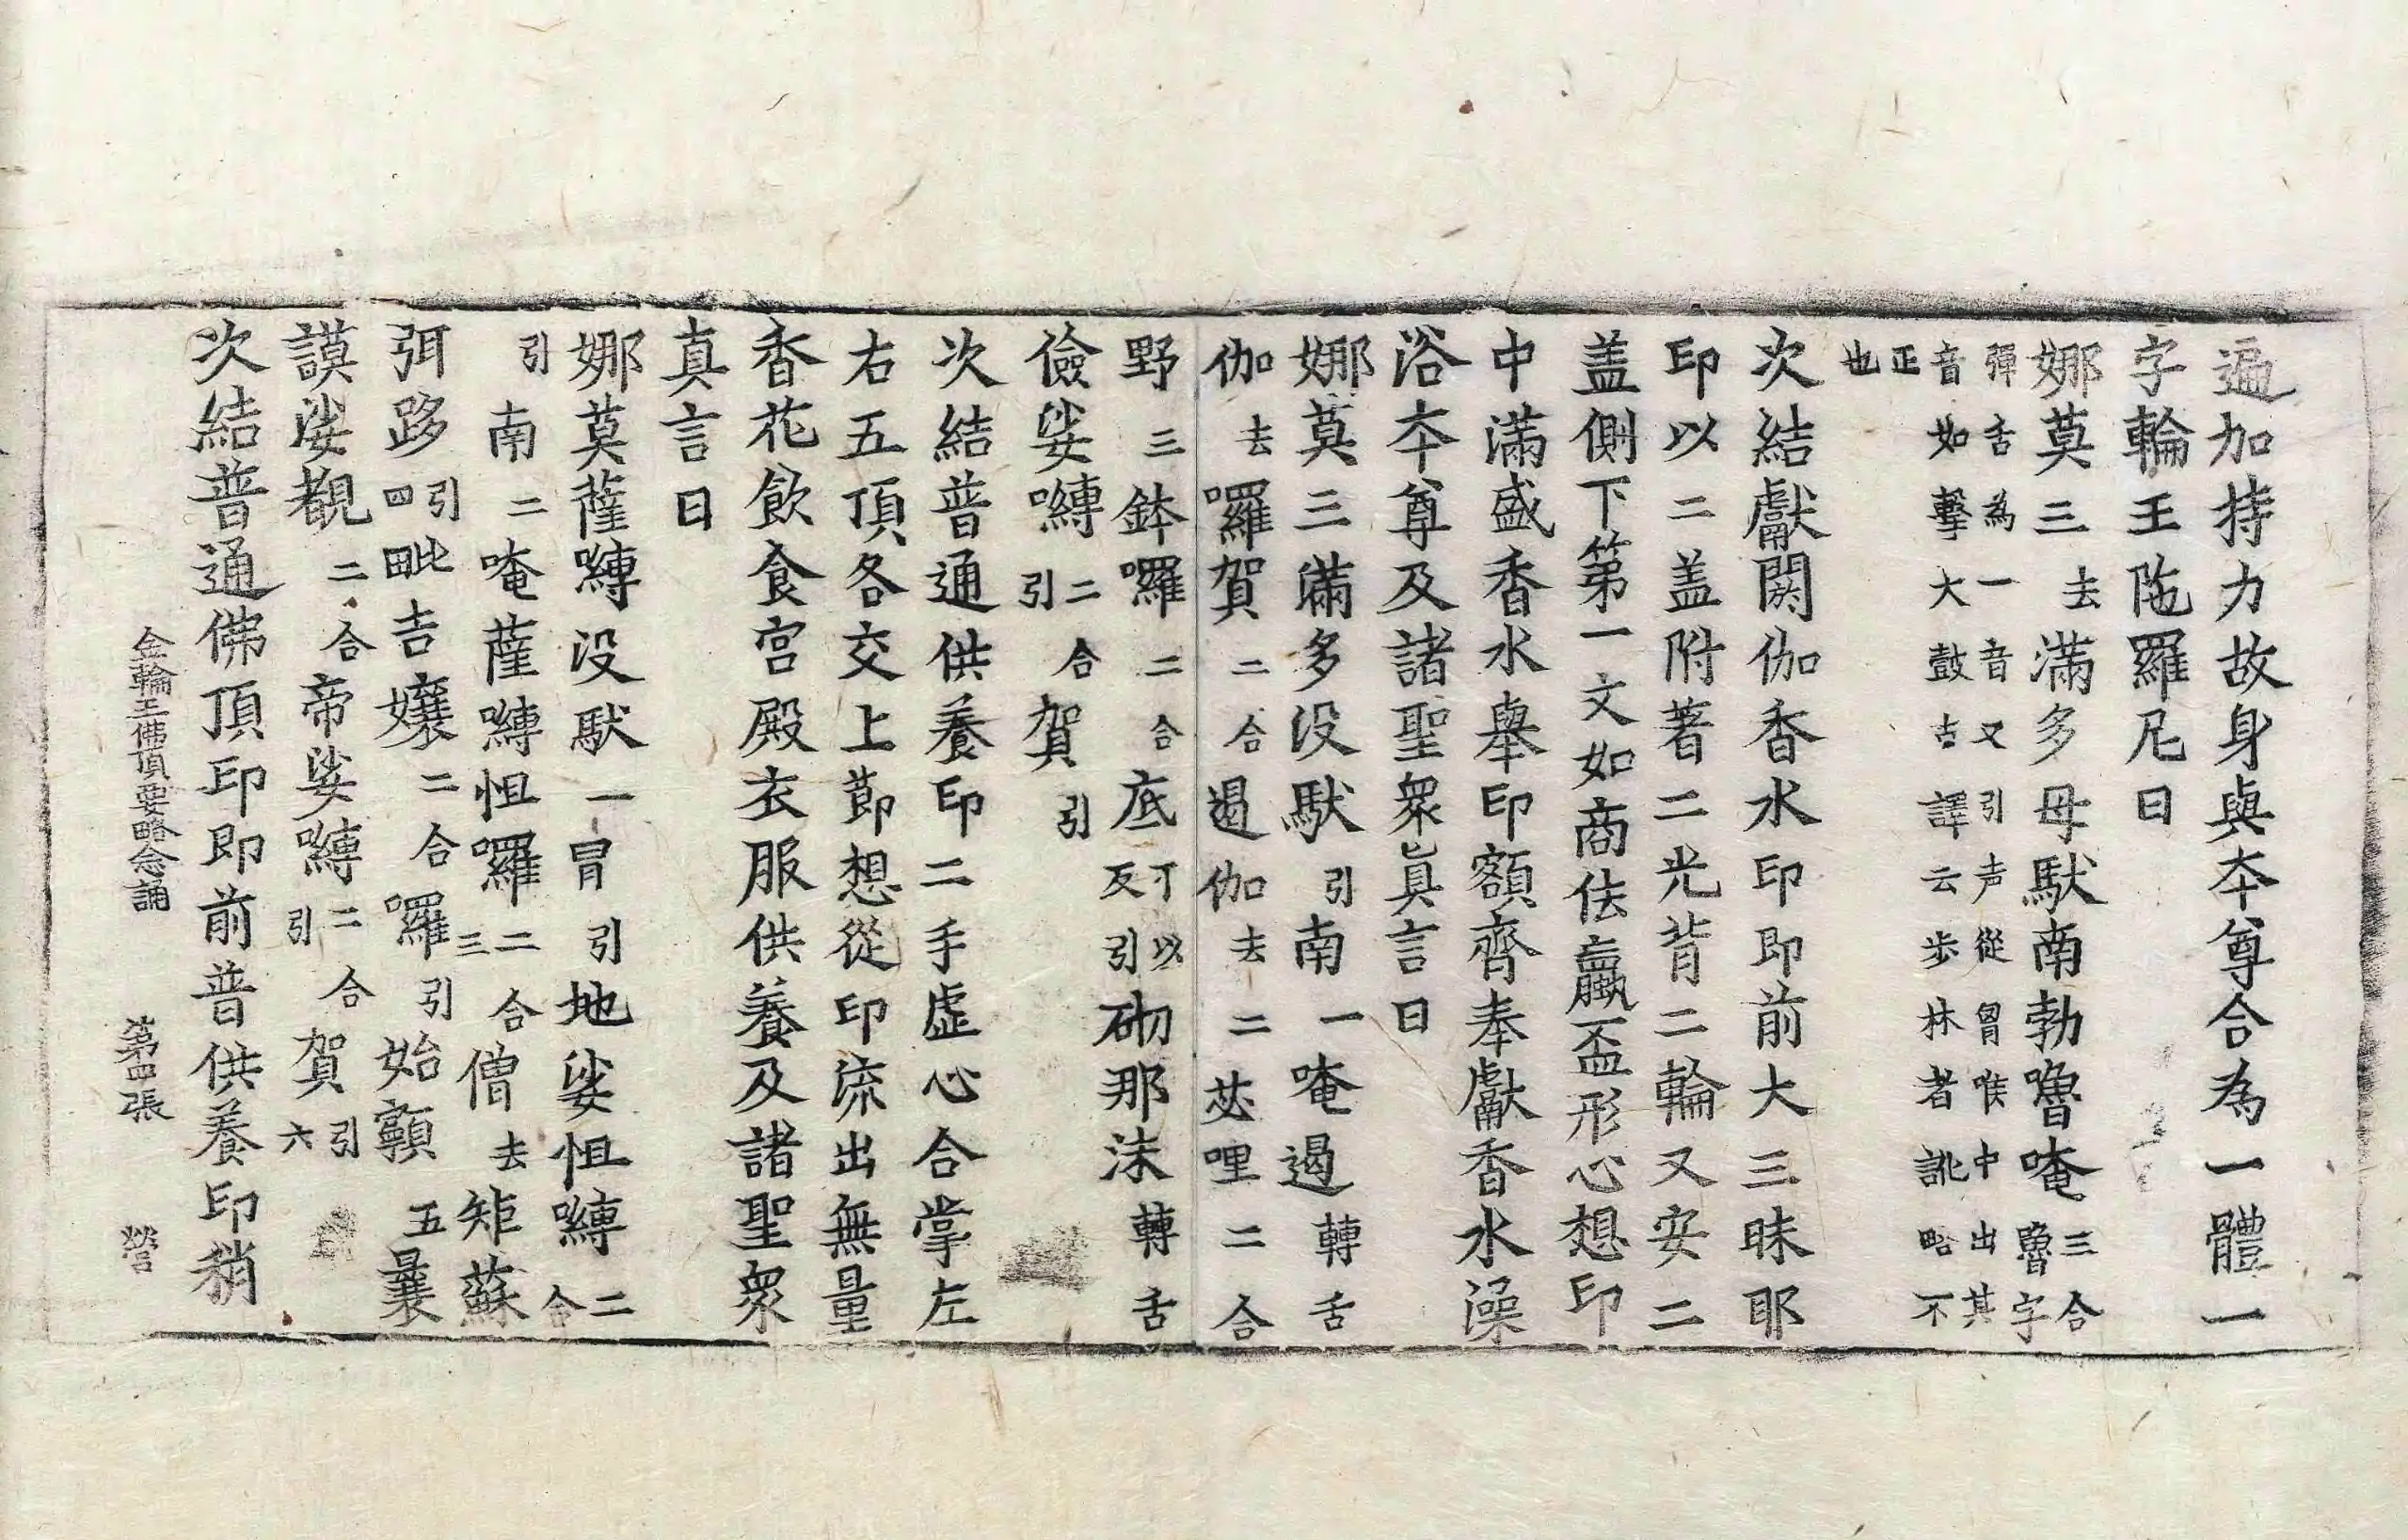 遍加持力故身與夲尊合為一體一
字輪王陁羅尼曰
娜莫三去滿多母馱南勃嚕唵三合魯字
彈舌為一音又引声從胷喉中出其
音如擊大鼓古譯云步林者訛略不
正也
次結獻閼伽香水印即前大三昧耶
印以二盖附著二光背二輪又安二
盖側下第一文如商佉蠃盃形心想印
中滿盛香水舉印額齊奉獻香水澡
浴夲尊及諸聖衆眞言曰
娜莫三滿多没馱引南一唵遏轉舌
伽去囉賀二合遏伽去二苾哩二合
野三鉢囉二合底丁以反引砌那沫轉舌
儉娑嚩二合引賀引
次結普通供養印二手虛心合掌左
右五頂各交上莭想從印流出無量
香花飲食宮殿衣服供養及諸聖衆
真言曰
娜莫薩嚩没馱一冐引地娑怛嚩二合
引南二唵薩嚩怛囉二合三僧去矩蘇
弭跢引四毗吉孃二合囉引始顙五曩
謨娑覩二合帝娑嚩二合引賀引六
次結普通佛頂印即前普供養印稍
金輪王佛頂要略念誦 第四張